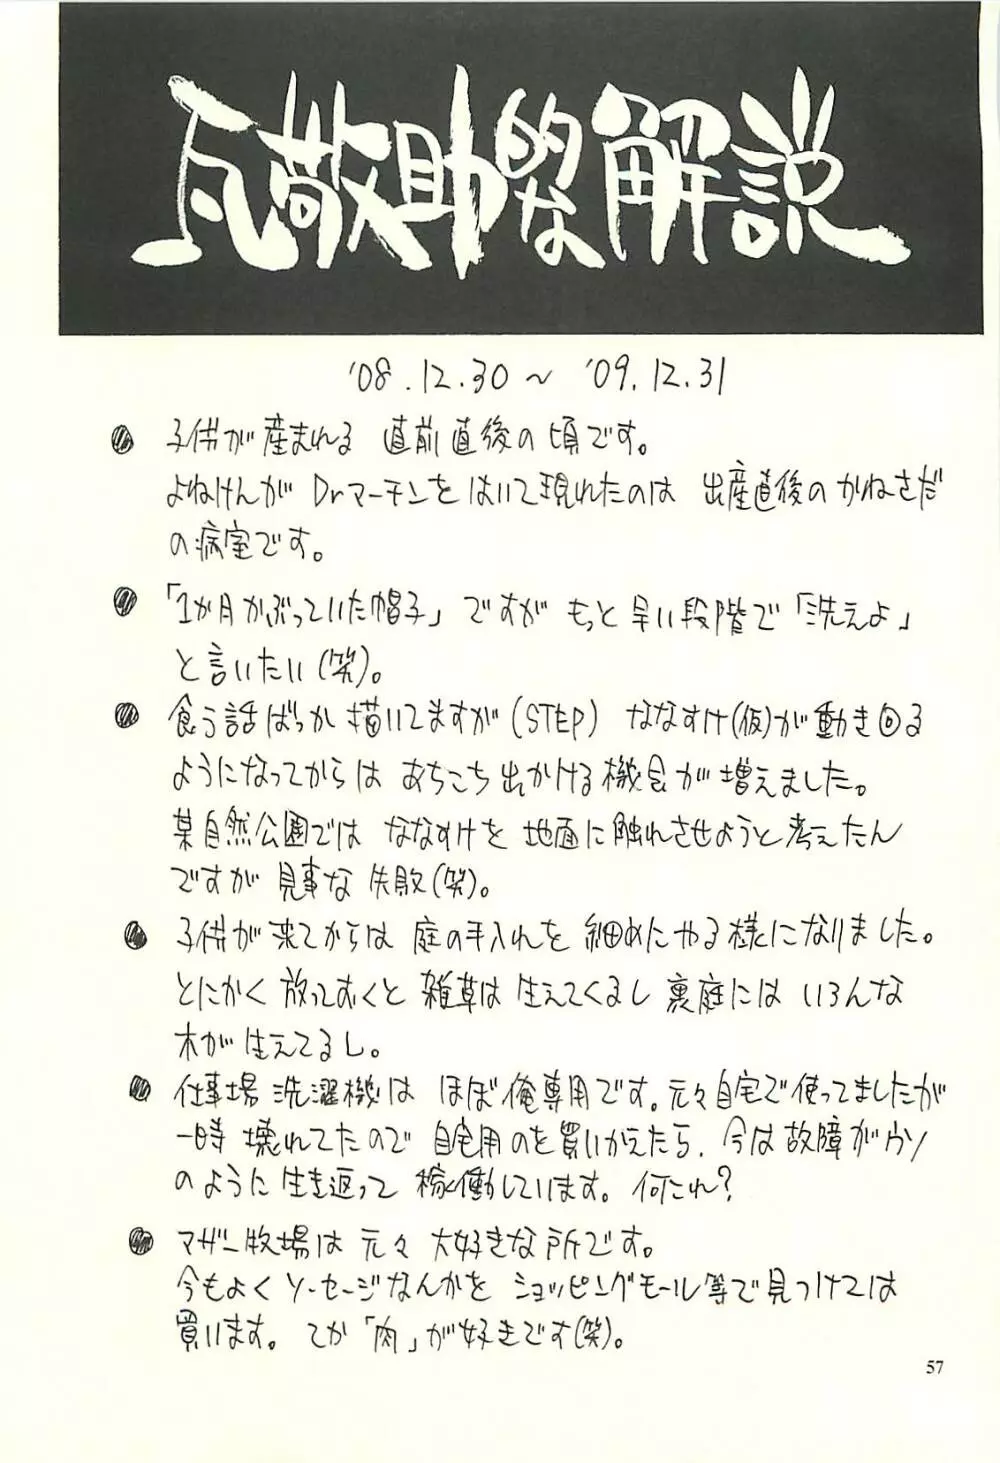 瓦敬助的な解説
'08.12.30〜 '09.12.31
● 子供が産まれる 直前直後の頃です。
よねけんが Drマーチンをはいて現れたのは 出産直後のかねさだ
の病室です。
● 「1か月かぶっていた帽子」ですが もっと早い段階で「洗えよ」
と言いたい(笑)。
● 食う話ばっか描いてますが(STEP) ななすけ(仮)が動き回る
ようになってからは あちこち出かける機会が増えました。
某自然公園では ななすけを 地面に触れさせようと考えたん
ですが 見事な失敗(笑)。
● 子供が来てからは 庭の手入れを 細めにやる様になりました。
とにかく 放っておくと 雑草は 生えてくるし 裏庭には いろんな
木が生えてるし。
● 仕事場 洗濯機は ほぼ俺専用です。元々自宅で使ってましたが
一時壊れてたので 自宅用のを買いかえたら、今は故障がウソ
のように生き返って 稼働しています。何これ?
● マザー牧場は 元々大好きな所です。
今もよくソーセージなんかを ショッピングモール等で見つけては
買います。てか「肉」が好きです(笑)。
57